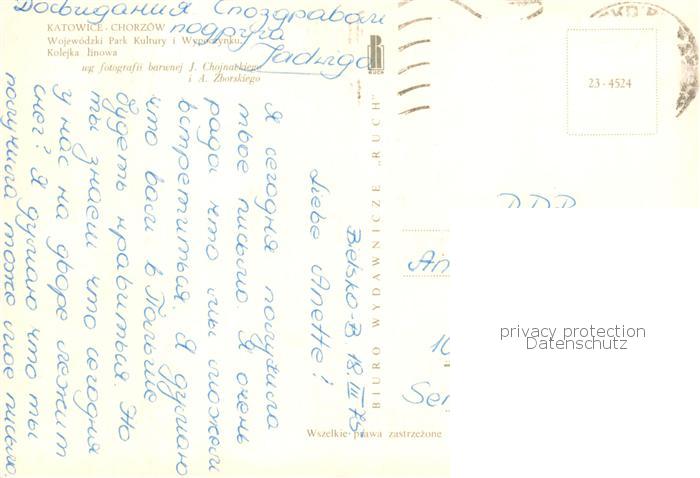 KATOWICE - CHORZÓW
Wojewódzki Park Kultury i Wypoczynku.
Kolejka linowa
wg fotografii barwnej J. Chojnackiego
i A. Zborskiego
RUCH
BIURO WYDAWNICZE „RUCH"
Wszelkie prawa zastrzeżone
23 - 4524
Bielsko-B. 18 III 75
Liebe Anette!
Я сегодня получила
твое письмо. Я очень
рада что мы можем
встретиться. Я думаю
что вам в Польше
будеть нравиться. Но
ты знаеш что сегодня
у нас на дворе лежит
снег? Я думаю что ты
получила тоже мое письмо
Досвидания с поздравам
подруга
Jadwiga
DDR
privacy protection
Datenschutz